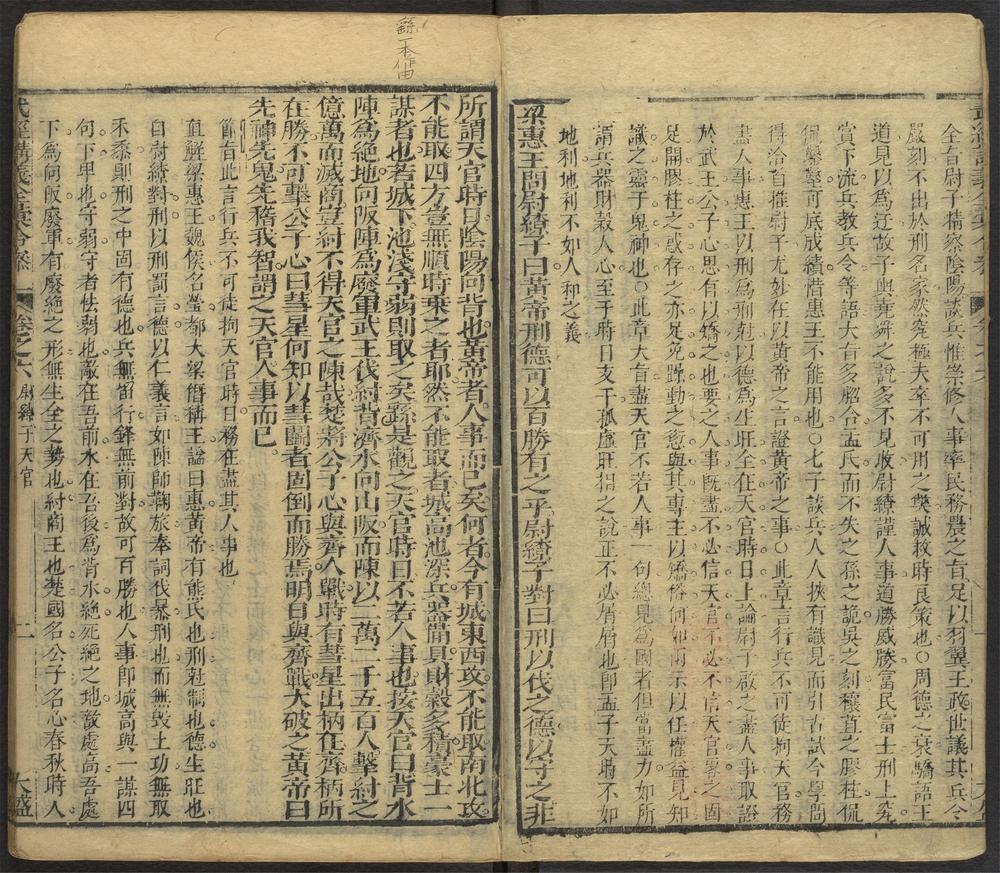 全旨尉子精察陰陽談兵惟崇修人事率民務農之旨足以羽翼王政世議其兵令
嚴刻不出於刑名家然究極夫卒不可用之獘誠救時良策也○周德之衰驕語王
道見以為迂故子輿堯舜之說多不見收尉繚謹人事道勝威勝富民富士刑上究
賞下流兵教兵令等語大旨多脗合孟氏而不失之孫之詭吳之刻穰苴之膠柱侃
侃鑿鑿可底成績惜惠王不能用也○七子談兵人人挾有識見而引古試今學問
得洽首推尉子尤妙在以黃帝之言證黃帝之事○此章言行兵不可徒拘天官務
盡人事惠王以刑為刑尅以德為生旺全在天官時日上論尉子啟之盡人事取證
於武王公子心思有以矯之也要之人事既盡不必信天官不必不信天官畧之固
足開膠柱之惑存之亦足免躁動之愆與其專主以矯俗何如兩示以任權益見知
識之靈于鬼神也○此章大旨盡天官不若人事一句總見為國者但當盡力如所
謂兵器財穀人心至于時日支干孤虛旺相之說正不必屑屑也即孟子天時不如
地利地利不如人和之義
梁惠王問尉繚子曰黃帝刑德可以百勝有之乎尉繚子對曰刑以伐之德以守之非
所謂天官時日陰陽向背也黃帝者人事而已矣何者今有城東西攻不能取南北攻
不能取四方豈無順時乘之者耶然不能取者城高池深兵器備具財穀多積豪士一
謀者也若城下池淺守弱則取之矣繇是觀之天官時日不若人事也按天官曰背水
陣為絕地向阪陣為廢軍武王伐紂背濟水向山阪而陳以二萬二千五百人擊紂之
億萬而滅商豈紂不得天官之陳哉楚將公子心與齊人戰時有彗星出柄在齊柄所
在勝不可擊公子心曰彗星何知以彗鬬者固倒而勝焉明日與齊戰大破之黃帝曰
先神先鬼先稽我智謂之天官人事而已
節旨此言行兵不可徒拘天官時日務在盡其人事也
直解梁惠王魏侯名瑩都大梁僭稱王諡曰惠黃帝有熊氏也刑尅制也德生旺也
自尉繚對刑以刑罰言德以仁義言如陳師鞠旅奉詞伐暴刑也而無毀土功無取
禾黍則刑之中固有德也兵無留行鋒無前對故可百勝也人事即城高與一謀四
句下卑也守弱守者怯弱也敵在吾前水在吾後為背水絕死絕之地敵處高吾處
下為向阪廢軍有廢絕之形無生全之勢也紂商王也楚國名公子名心春秋時人
卷之六
尉繚子天官
二
大盛
繇一本作由